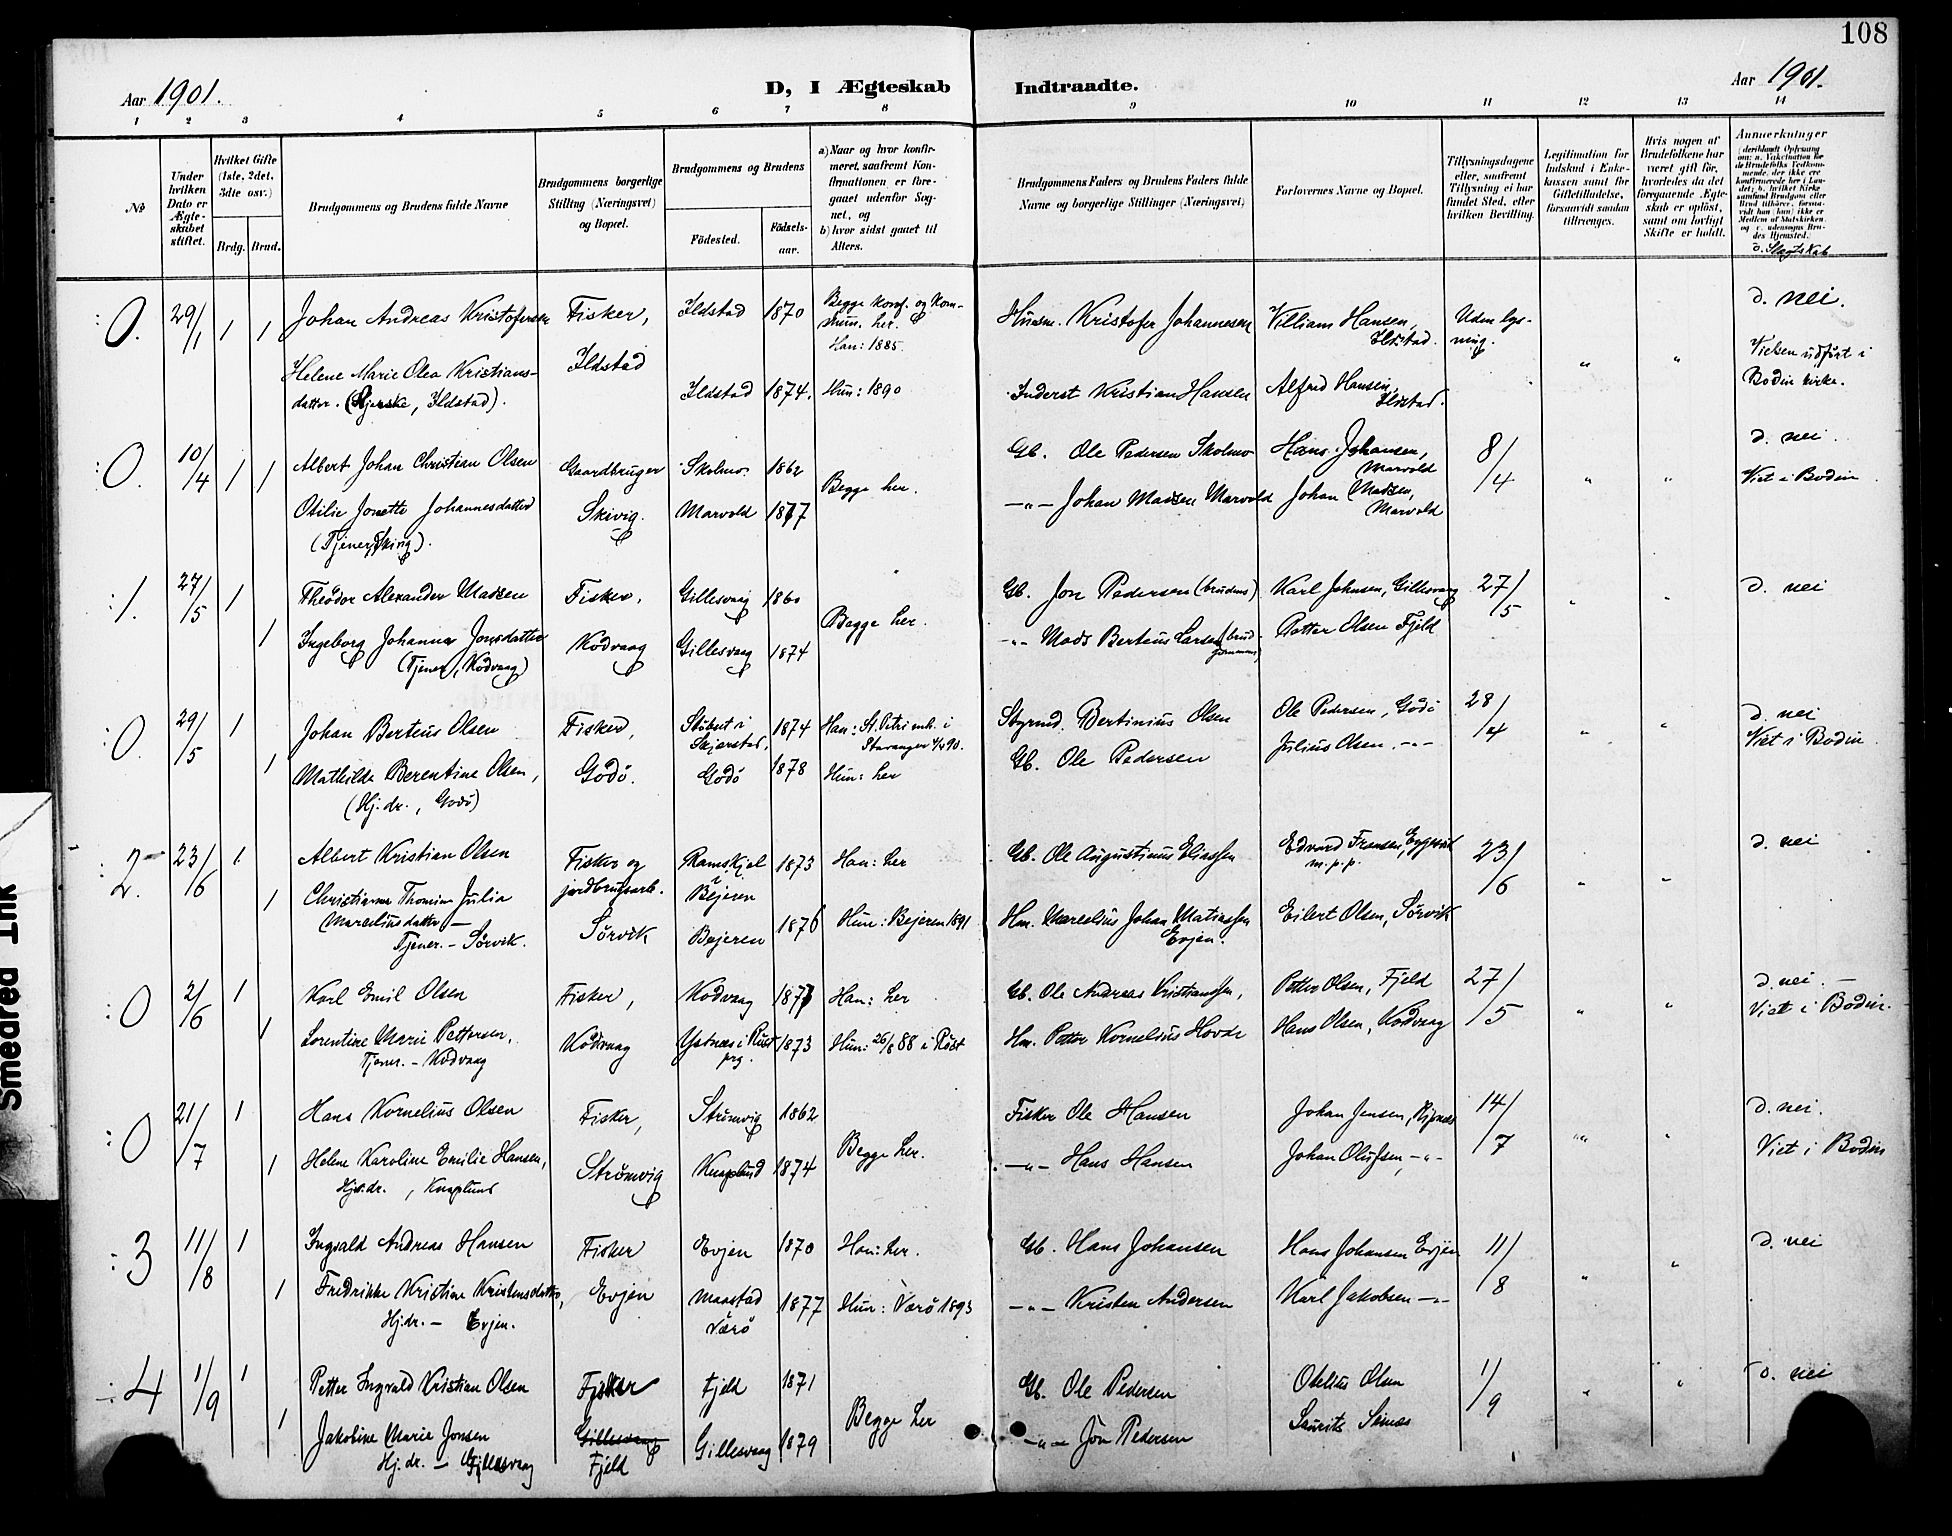 108
Aar 1901.
D, I Ægteskab Indtraadte.
Aar 1901.
1 2 3 4 5 6 7 8 9 10 11 12 13 14
№
Under hvilken Dato er Ægteskabet stiftet.
Hvilket Gifte (1ste, 2det, 3die osv.)
Brdg. Brud.
Brudgommens og Brudens fulde Navne
Brudgommens borgerlige Stilling (Næringsvei) og Bopæl.
Brudgommens og Brudens
Fødested.
Fødselsaar.
a) Naar og hvor konfirmeret, saafremt Konfirmationen er foregaaet udenfor Sognet, og
b) hvor sidst gaaet til Alters.
Brudgommens Faders og Brudens Faders fulde Navne og borgerlige Stillinger (Næringsvei)
Forlovernes Navne og Bopæl.
Tillysningsdagene eller, saafremt Tillysning ei har fundet Sted, efter hvilken Bevilling.
Legitimation for Indskud i Enkekassen samt for Giftetilladelse, forsaavidt saadan tiltrænges.
Hvis nogen af Brudefolkene har været gift før, hvorledes da det foregaaende Ægteskab er opløst, samt om lovligt Skifte er holdt.
Anmerkninger
d. Slagtskab
0. 29/1 1 1 Johan Andreas Kristofersen Fisker, Ildstad Ildstad 1870 Begge konf. og Kommun. her. Han: 1885. Husm. Kristofer Johannesen Villiam Hansen, Ildstad. Uden lysning. " " d. nei.
Helene Marie Olea Kristiansdatter. (Syerske, Ildstad). Ildstad 1874. Hun: 1890 Inderst Kristian Hansen Alfred Hansen, Ildstad. Vielsen udført i Bodin kirke.
0. 10/4 1 1 Albert Johan Christian Olsen Gaardbruger Skivig. Skolmo 1862 Begge her. Gb. Ole Pedersen Skolmo Hans Johansen, Marvold 8/4 " " d. nei.
Otilie Jonette Johannesdatter (Tjener, Skivig). Marvold 1877 -"- Johan Madsen Marvold Johan Madsen, Marvold Viet i Bodin
1. 27/5 1 Theodor Alexander Madsen Fisker, Kodvaag Gillesvaag 1860 Begge her. Gb. Jon Pedersen (brudens) Karl Johnsen, Gillesvaag 27/5 " " d. nei
1 Ingeborg Johanna Jonsdatter (Tjener, Kodvaag) Gillesvaag 1874 -"- Mads Berteus Larsen (brudgommens) Petter Olsen Fjeld
0 29/5 1 Johan Berteus Olsen Fisker, Godø. Støbest i Skjerstad, 1874 Han: St. Petri mh. i Stavanger 4/4 90. Styrmd. Bertinius Olsen Ole Pedersen, Godø 28/4 " " d. nei
1 Mathilde Berentine Olsen, (Hj.dr., Godø) Godø 1878 Hun: her Gb. Ole Pedersen Julius Olsen. -"- Viet i Bodin
2. 23/6 1 Albert Kristian Olsen Fisker og jordbrugsarb. Sørvik Ramskjel i Bejeren 1873 Han: her Gb. Ole Augustinus Eliassen Edvard Fransen, m.p.p. 23/6 " " d. nei
1 Christianna Thomine Julia Marceliusdatter - Tjener. - Sørvik. Bejeren 1876 Hun: Bejeren 1891 Hm. Marcelius Johan Matiassen Evjen. Eilert Olsen, Sørvik
0 2/6 1 Karl Emil Olsen Fisker, Kodvaag Kodvaag 1877 Han: her Gb. Ole Andreas Kristianssen, Petter Olsen, Fjeld 27/5 " " d. nei. -
1 Lorentine Marie Pettersen, Tjener. - Kodvaag Ystnæs i Røst prg. 1873 Hun: 26/8 88 i Røst Hm. Petter Kornelius Hovde Hans Olsen, Kodvaag Viet i Bodin.
0 21/7 1 Hans Kornelius Olsen Fisker, Strømvig Strømvig 1862 Begge her. Fisker Ole Hansen Johan Jensen, Ripnæs 14/7 "" " d. nei.
1 Helene Karoline Emilie Hansen, Hjv.dr., Knaplund Knaplund 1874 -"- Hans Hansen Johan Olufsen, -"- Viet i Bodin
3 11/8 1 Ingvald Andreas Hansen Fisker Evjen Evjen 1870 Han: her. Gb. Hans Johansen Hans Johansen Evjen 11/8 " " d. nei
1 Fredrikke Kristine Kristensdatter, Hj.dr. - Evjen. Maastad Værø 1877 Hun: Værø 1893 -"- Kristen Andersen Karl Jakobsen -"-
4 1/9 1 Petter Ingvald Kristian Olsen Fisker Gillesvaag Fjeld Fjeld 1871 Begge her Gb. Ole Pedersen Otelius Olsen 1/9 " " d. nei
1 Jakobine Marie Jonsen Hj.dr. - Gillesvaag Gillesvaag 1879 -"- Jon Pedersen
Smedred Ink